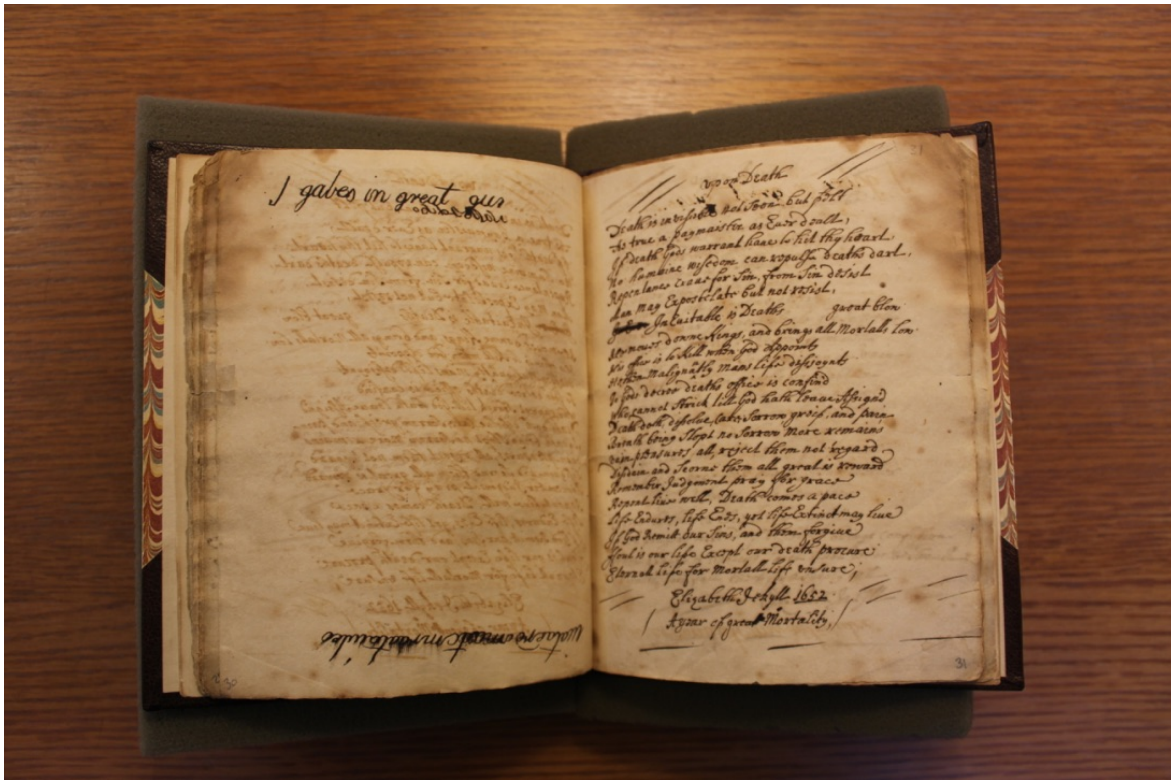 I gabes in great
30
upon Death
Death is invisable not seen but felt
As true a paymaister as Ever dealt,
If death Gods warrant have to hit thy heart
No humaine wisedom can repulse deaths dart,
Repentance crave for Sin, from Sin desist
Man may Expostelate but not resist,
InEvitable is Deaths great blow
downe Kings, and brings all Mortalls low
His office is to kill when God appoints
Malignātly mans life dissjoynts
To Gods decree deaths office is confind
She cannot Strick till God hath leave Assignd
Death doth dissolve, Care, Sorrow greif, and pain
Breath being Stopt no Sorrow more remains
Vain pleasures, all, reject them not regard
Disdain and Scorne them all great is reward
Remember Judgment pray for grace
Repent live well, Death comes a pace
Life Endures, life Ends, yet life Extinct may live
If God Remitt our Sins, and them forgive
Soul is our life Except our death procure
Eternal life for Mortall life ensure,
Elizabeth Jekyll 1652
A year of great Mortality,
31